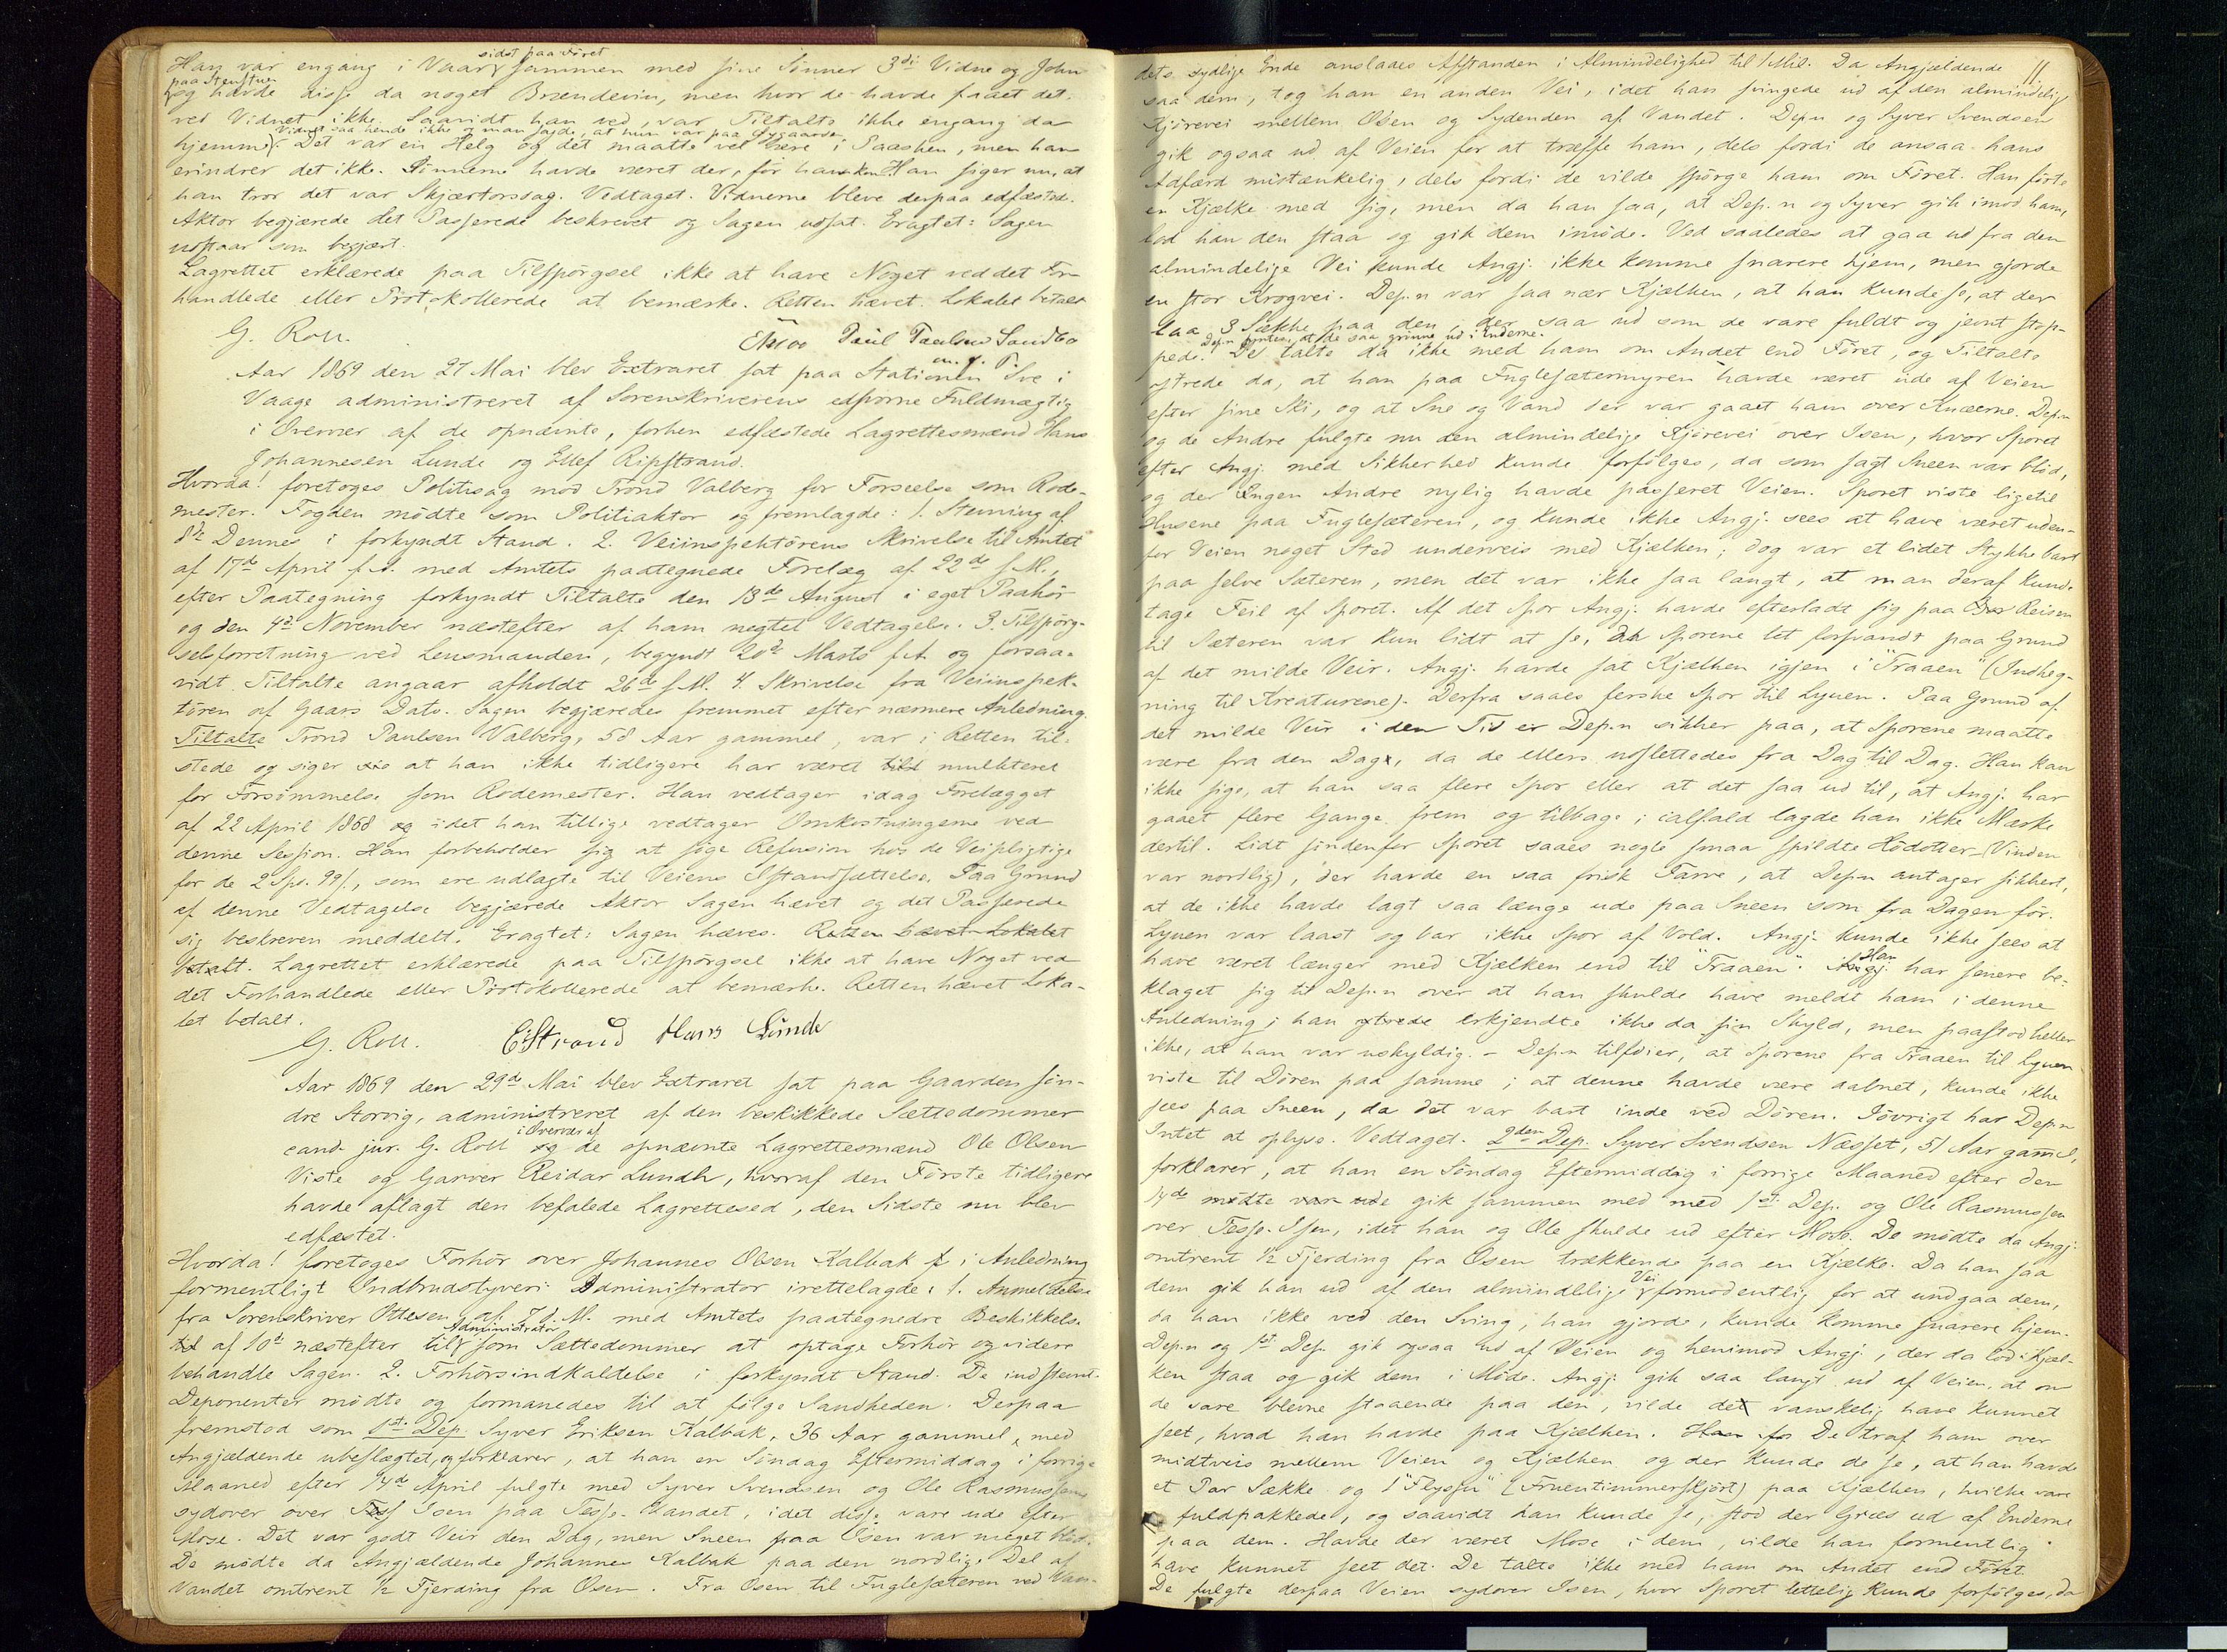 Han var engang i Vaar sidst paa Føret sammen med sine Sønner 3die Vidne og John
paa Stenstuen og havde disse da noget Brændevin, men hvor de havde faaet det
ved Vidnet ikke. Saavidt han ved, var Tiltalte ikke engang da
hjemme. Vidnet saa hende ikke og man sagde, at hun var paa Bygaarden Det var en Helg og det maatte vel være i Paasken, men han
erindrer det ikke. Sønnerne havde været der, før Han siger nu, at
han tror det var Skjærtorsdag. Vedtaget. Vidnerne bleve derpaa edfæstede.
Aktor begjærede det Passerede beskrevet og Sagen udsat. Eragtet: Sagen
udstaar som begjært.
Lagrettet erklærede paa Tilspørgsel ikke at have Noget ved det For-
handlede eller Protokollerede at bemærke. Retten hævet. Lokalet betalt
G. Roll. Paul Paulsen Sandbo
m. f. P.
Aar 1869 den 27 Mai blev Extraret sat paa Stationen Sve i
Vaage administreret af Sorenskriverens edsvorne Fuldmægtig
i Overvær af de opnævnte, forhen edfæstede Lagrettesmænd Hans
Johannesen Lunde og Ellef Ripstrand.
Hvorda! foretoges Politisag mod Trond Valberg for Forseelse som Rode-
mester. Fogden mødte som Politiaktor og fremlagde: 1. Stevning af
8de Dennes i forkyndt Stand. 2. Veiinspektørens Skrivelse til Amtet
af 17de April f. A. med Amtets paategnede Forelæg af 22de s. M.,
efter Paategning forkyndt Tiltalte den 13de August i eget Paahør
og den 4de November næstefter af ham negtet Vedtagelse. 3. Tilspørg-
selsforretning ved Lensmanden, begyndt 20de Marts f. A. og forsaa-
vidt Tiltalte angaar afholdt 26de s. M. 4. Skrivelse fra Veiinspek-
tøren af Gaars Dato. Sagen begjæredes fremmet efter nærmere Anledning.
Tiltalte Trond Paulsen Valberg, 58 Aar gammel, var i Retten til-
stede og siger at han ikke tidligere har været mulkteret
for Forsømmelse som Rodemester. Han vedtager idag Forelægget
af 22 April 1868 og idet han tillige vedtager Omkostningerne ved
denne Session. Han forbeholder sig at søge Refusion hos de Veipligtige
for de 2 Spd. 99 s., som ere udlagte til Veiens Istandsættelse. Paa Grund
af denne Vedtagelse begjærede Aktor Sagen hævet og det Passerede
sig beskreven meddelt. Eragtet: Sagen hæves. Retten hævet. Lokalet
betalt. Lagrettet erklærede paa Tilspørgsel ikke at have Noget ved
det Forhandlede eller Protokollerede at bemærke. Retten hævet Loka-
let betalt.
G. Roll. E. Strand Hans Lunde
Aar 1869 den 29de Mai blev Extraret sat paa Gaarden Søn-
dre Storvig, administreret af den beskikkede Sættedommer
cand. jur. G. Roll i Overvær af de opnævnte Lagrettesmænd Ole Olsen
Viste og Garver Reidar Lundh, hvoraf den Første tidligere
havde aflagt den befalede Lagretteseed, den Sidste nu blev
edfæstet.
Hvorda! foretoges Forhør over Johannes Olsen Kalbak i Anledning
formentligt Indbrudstyveri. Administrator irettelagde: 1. Anmeldelse
fra Sorenskriver Ottesen af 7 d. M. med Amtets paategnede Beskikkelse
af 10de næstefter til Administrator som Sættedommer at optage Forhør og videre
behandle Sagen. 2. Forhørsindkaldelse i forkyndt Stand. De indstevnte
Deponenter mødte og formanedes til at følge Sandheden. Derpaa
fremstod som 1ste Dep. Syver Eriksen Kalbak, 36 Aar gammel, med
Angjældende ubeslægtet, og forklarer, at han en Søndag Eftermiddag i forrige
Maaned efter 14de April fulgte med Syver Svendsen og Ole Rasmussen
sydover over Isen paa Tesse-Vandet, idet disse vare ude efter
Mose. Det var godt Veir den Dag, men Sneen paa Isen var meget blød.
De mødte da Angjældende Johannes Kalbak paa den nordlige Del af
Vandet omtrent 1/2 Fjerding fra Osen. Fra Osen til Fuglesæteren ved Van-
11
dets sydlige Ende anslaaes Afstanden i Almindelighed til 1 Mil. Da Angjældende
saa dem, tog han en anden Vei, idet han svingede ud af den almindelig
Kjørevei mellem Osen og Sydenden af Vandet. Dep.n og Syver Svendsen
gik ogsaa ud af Veien for at træffe ham, dels fordi de ansaa hans
Adfærd mistænkelig, dels fordi de vilde spørge ham om Føret. Han førte
en Kjælke med sig, men da han saa, at Dep.n og Syver gik imod ham,
lod han den staa og gik dem imøde. Ved saaledes at gaa ud fra den
almindelige Vei kunde Angj. ikke komme snarere hjem, men gjorde
en stor Krogvei. Dep.n var saa nær Kjælken, at han kunde se, at der
laa 3 Sække paa den, der saa ud som de vare fuldt og jevnt stop-
pede. De talte da ikke med ham om Andet end Føret, og Tiltalte
ytrede da, at han paa Fuglesætermyren havde været ude af Veien
efter sine Ski, og at Sne og Vand der var gaaet ham over Knæerne. Dep.n
og de Andre fulgte nu den almindelige Kjørevei over Isen, hvor Sporet
efter Angj. med Sikkerhed kunde forfølges, da som sagt Sneen var blød,
og der Ingen Andre nylig havde passeret Veien. Sporet viste ligetil
Husene paa Fuglesæteren, og kunde ikke Angj. sees at have været uden-
for Veien noget Sted underveis med Kjælken; dog var et lidet Stykke bart
paa selve Sæteren, men det var ikke saa langt, at man deraf kunde
tage Feil af Sporet. Af det Spor Angj. havde efterladt sig paa Reisen
til Sæteren var kun lidt at se, da Sporene let forsvandt paa Grund
af det milde Veir. Angj. havde sat Kjælken igjen i "Traaen" (Indheg-
ning til Kreaturene). Derfra saaes ferske Spor til Lyuen. Paa Grund af
det milde Veir i den Tid er Dep.n sikker paa, at Sporene maatte
være fra den Dag, da de ellers udslettedes fra Dag til Dag. Han kan
ikke sige, at han saa flere Spor eller at det saa ud til, at Angj. har
gaaet flere Gange frem og tilbage; ialfald lagde han ikke Mærke
dertil. Lidt søndenfor Sporet saaes nogle smaa spildte Hødotter (Vinden
var nordlig), der havde en saa frisk Farve, at Dep.n antager sikkert,
at de ikke havde lagt saa længe ude paa Sneen som fra Dagen før.
Lyuen var laast og bar ikke Spor af Vold. Angj. kunde ikke sees at
have været længer med Kjælken end til "Traaen". Han har senere be-
klaget sig til Dep.n over at han skulde have meldt ham i denne
Anledning; han ytrede erkjendte ikke da sin Skyld, men paastod heller
ikke, at han var uskyldig. - Dep.n tilføier, at Sporene fra Traaen til Lyuen
viste til Døren paa samme; at denne havde være aabnet, kunde ikke
sees paa Sneen, da det var bart inde ved Døren. Iøvrigt har Dep.n
Intet at oplyse. Vedtaget. 2den Dep. Syver Svendsen Næsset, 51 Aar gaml,
forklarer, at han en Søndag Eftermiddag i forrige Maaned efter den
14de mødte var ude gik sammen med med 1ste Dep. og Ole Rasmussen
over Tesse-Isen, idet han og Ole skulde ud efter Mose. De mødte da Angj.
omtrent 1/2 Fjerding fra Osen trækkende paa en Kjælke. Da han saa
dem gik han ud af den almindelige Vei formodentlig for at undgaa dem,
da han ikke ved den Sving, han gjorde, kunde komme snarere hjem.
Dep.n og 1ste Dep. gik ogsaa ud af Veien og henimod Angj., der da lod Kjæl-
ken staa og gik dem i Møde. Angj. gik saa langt ud af Veien, at om
de vare blevne staaende paa den, vilde det vanskelig have kunnet
seet, hvad han havde paa Kjælken. De traf ham over
midtveis mellem Veien og Kjælken og der kunde de se, at han havde
et Par Sække og 1 "Flyssu" (Fruentimmerskjørt) paa Kjælken, hvilke vare
fuldpakkede, og saavidt han kunde se, stod der Græs ud af Enderne
paa dem. Havde der været Mose i dem, vilde han formentlig
have kunnet seet det. De talte ikke med ham om Andet end Føret.
De fulgte derpaa Veien sydover Isen, hvor Sporet lettelig kunde forfølges, da